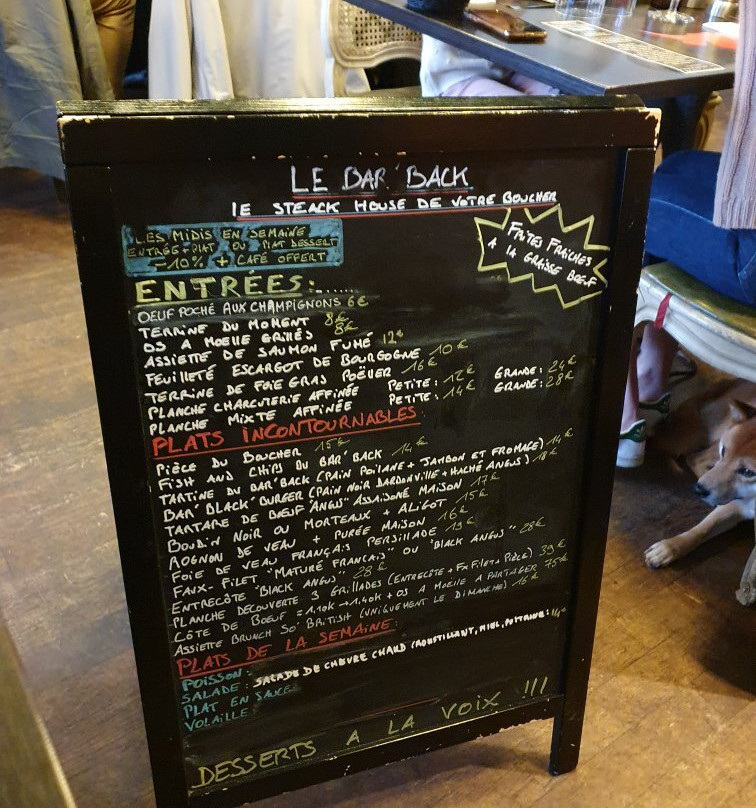 LE BAR'BACK
LE STEACK HOUSE DE VOTRE BOUCHER
LES MIDIS EN SEMAINE
ENTRÉE + PLAT OU PLAT DESSERT
-10% + CAFÉ OFFERT
FRITES FRAÎCHES
A LA GRAISSE BŒUF
ENTRÉES:......
OEUF POCHÉ AUX CHAMPIGNONS 6€
TERRINE DU MOMENT 8€
OS A MOELLE GRILLÉS 8€
ASSIETTE DE SAUMON FUMÉ 12€
FEUILLETÉ ESCARGOT DE BOURGOGNE 10€
TERRINE DE FOIE GRAS POËLER 16€
PLANCHE CHARCUTERIE AFFINÉE PETITE: 12€ GRANDE: 24€
PLANCHE MIXTE AFFINÉE PETITE: 14€ GRANDE: 28€
PLATS INCONTOURNABLES:
PIÈCE DU BOUCHER 15€
FISH AND CHIPS DU BAR'BACK 14€
TARTINE DU BAR'BACK (PAIN POILANE + JAMBON ET FROMAGE) 14€
BAR'BLACK' BURGER (PAIN NOIR DARDONVILLE + HACHÉ ANGUS) 18€
TARTARE DE BŒUF "ANGUS" ASSAISONÉ MAISON 17€
BOUDIN NOIR OU MORTEAUX + ALIGOT 15€
ROGNON DE VEAU + PURÉE MAISON 16€
FOIE DE VEAU FRANÇAIS PERSILLADE 19€
FAUX-FILET "MATURÉ FRANÇAIS" OU "BLACK ANGUS" 28€
ENTRECÔTE "BLACK ANGUS" 28€
PLANCHE DECOUVERTE 3 GRILLADES (ENTRECÔTE + FX FILET + PIÈCE) 39€
CÔTE DE BŒUF = 1.10K → 1.40K + OS A MOELLE A PARTAGER 75€
ASSIETTE BRUNCH SO' BRITISH (UNIQUEMENT LE DIMANCHE) 16€
PLATS DE LA SEMAINE:
POISSON:
SALADE: SALADE DE CHEVRE CHAUD (CROUSTILLANT, MIEL, POITRINE): 14€
PLAT EN SAUCE
VOLAILLE
DESSERTS A LA VOIX !!!